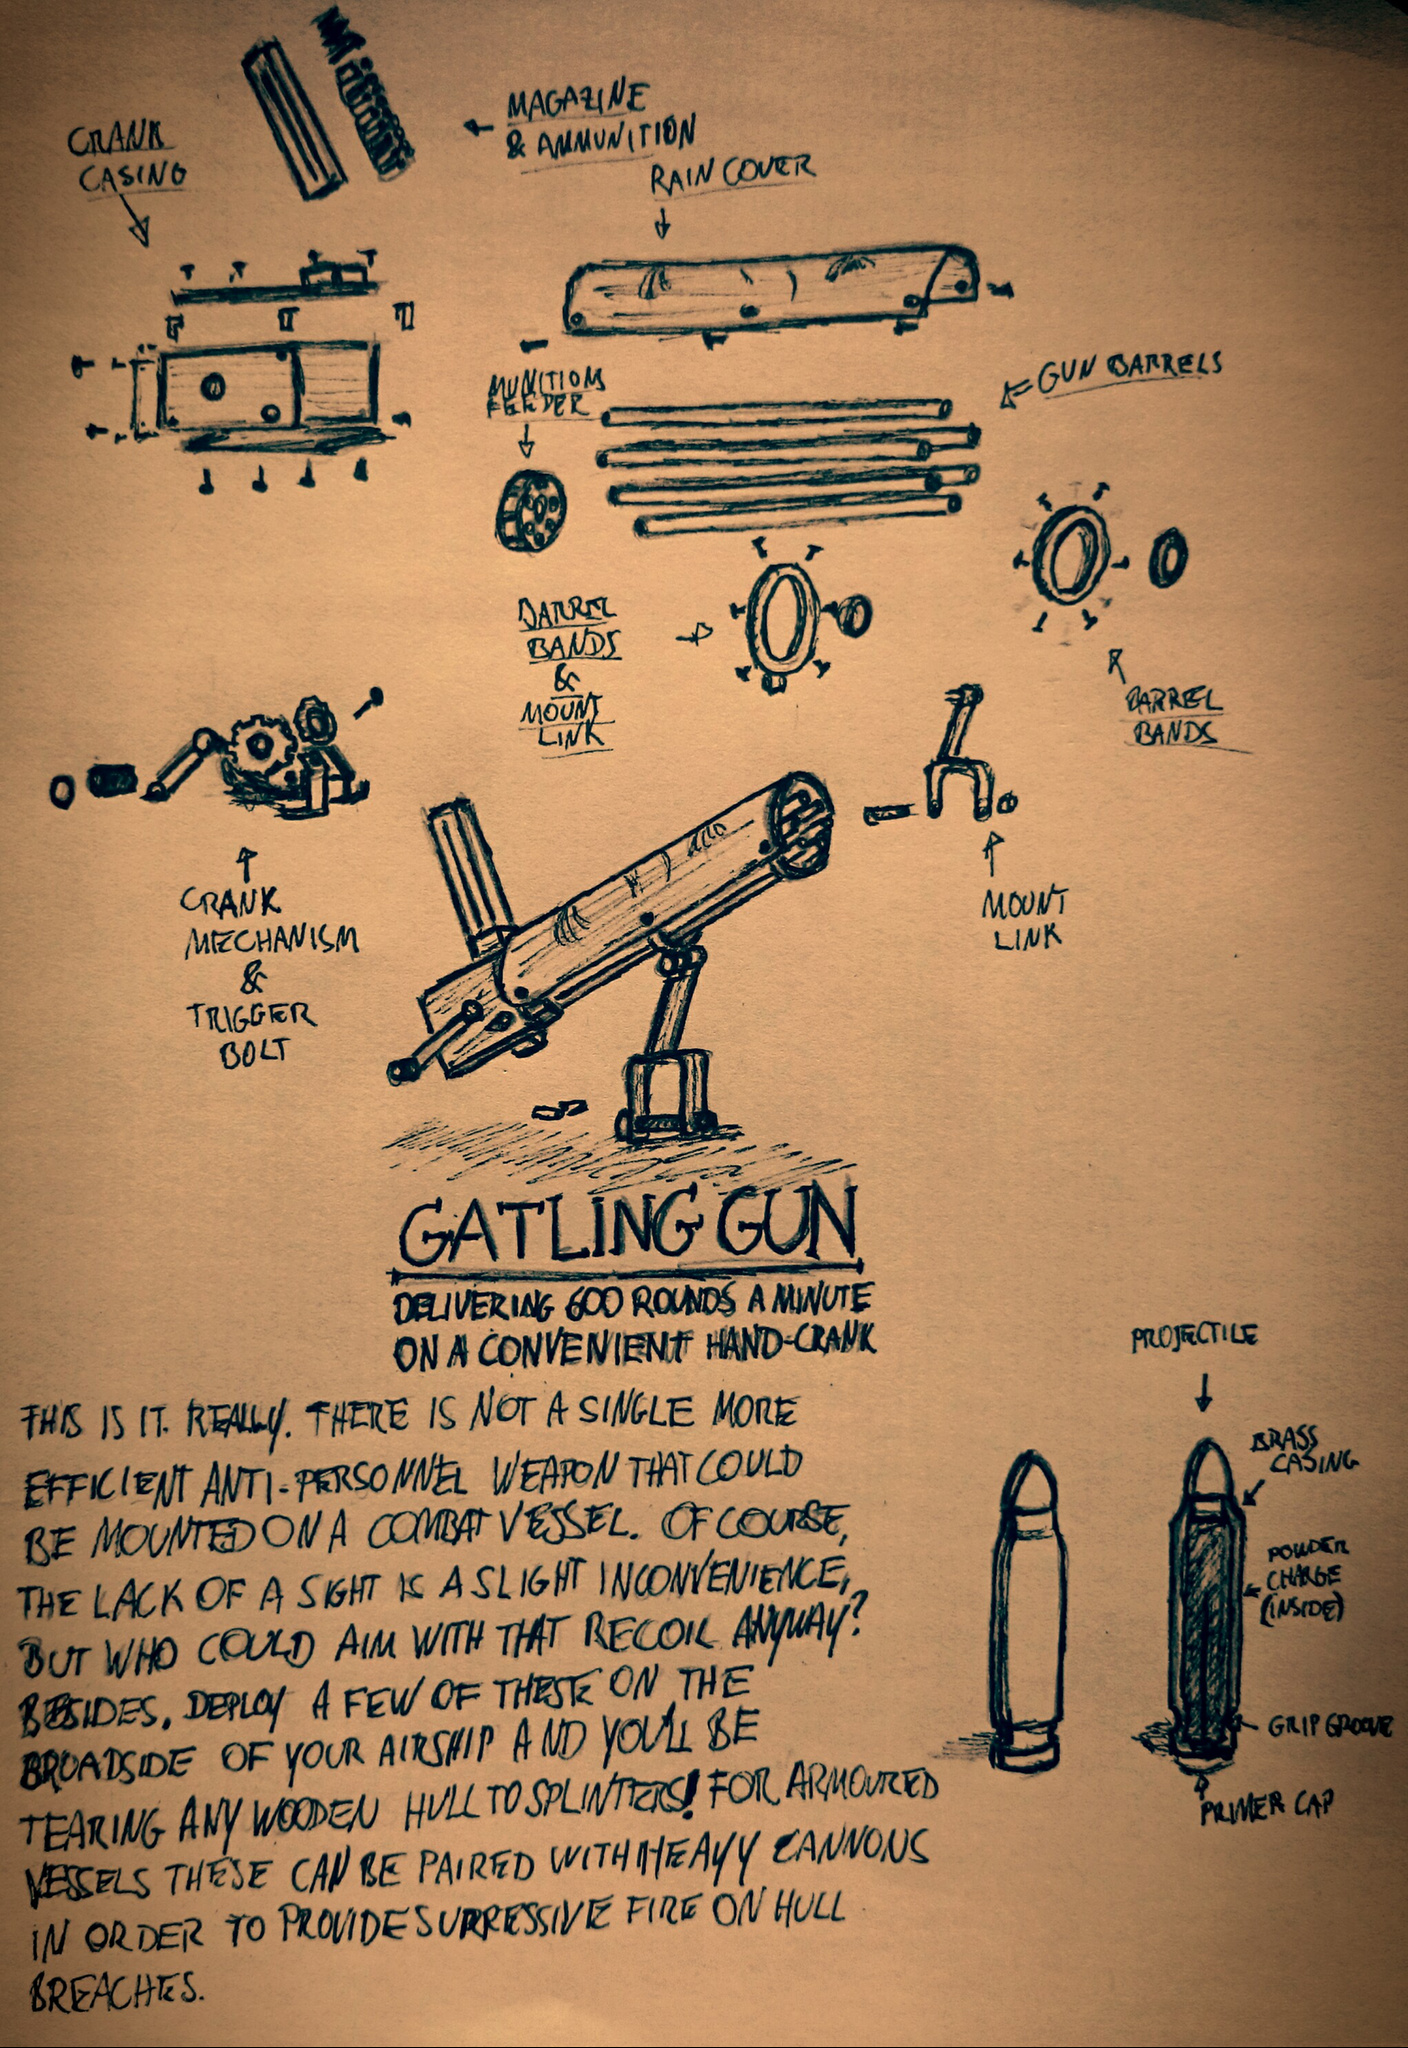 CRANK
CASING
MAGAZINE
& AMMUNITION
RAIN COVER
MUNITIONS
FEEDER
GUN BARRELS
BARREL
BANDS
&
MOUNT
LINK
BARREL
BANDS
CRANK
MECHANISM
&
TRIGGER
BOLT
MOUNT
LINK
GATLING GUN
DELIVERING 600 ROUNDS A MINUTE
ON A CONVENIENT HAND-CRANK
THIS IS IT. REALLY. THERE IS NOT A SINGLE MORE
EFFICIENT ANTI-PERSONNEL WEAPON THAT COULD
BE MOUNTED ON A COMBAT VESSEL. OF COURSE,
THE LACK OF A SIGHT IS A SLIGHT INCONVENIENCE,
BUT WHO COULD AIM WITH THAT RECOIL ANYWAY?
BESIDES, DEPLOY A FEW OF THESE ON THE
BROADSIDE OF YOUR AIRSHIP AND YOU'LL BE
TEARING ANY WOODEN HULL TO SPLINTERS! FOR ARMOURED
VESSELS THESE CAN BE PAIRED WITH HEAVY CANNONS
IN ORDER TO PROVIDE SUPRESSIVE FIRE ON HULL
BREACHES.
PROJECTILE
BRASS
CASING
POWDER
CHARGE
(INSIDE)
GRIP GROOVE
PRIMER CAP